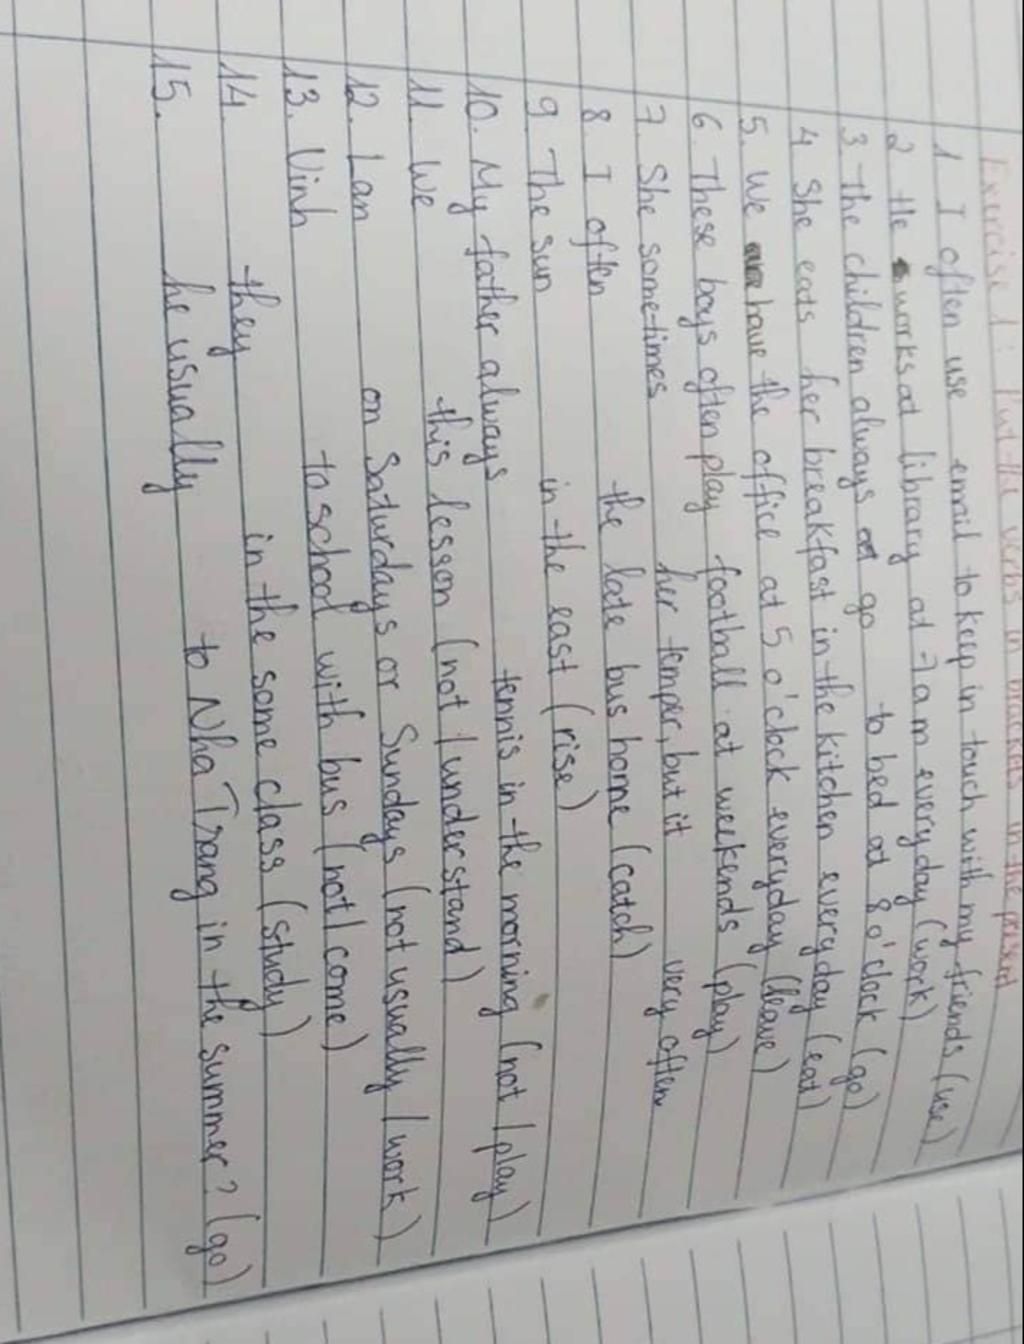 Exercise 1: Put the verbs in brackets in the present
1 I often use email to keep in touch with my friends (use)
2 He works at library at 7 a m every day (work)
3 The children always go to bed at 8 o'clock (go)
4 She eats her breakfast in the kitchen everyday (eat)
5. We have the office at 5 o'clock everyday (leave)
6. These boys often play football at weekends (play)
7. She sometimes her temper, but it very often
8 I often the late bus home (catch)
9 The sun in the east (rise)
10. My father always tennis in the morning (not / play)
11. We this lesson (not / understand)
12. Lan on Saturdays or Sundays (not usually / work)
13. Vinh to school with bus (not / come)
14 they in the some class (study)
15. he usually to Nha Trang in the summer? (go)